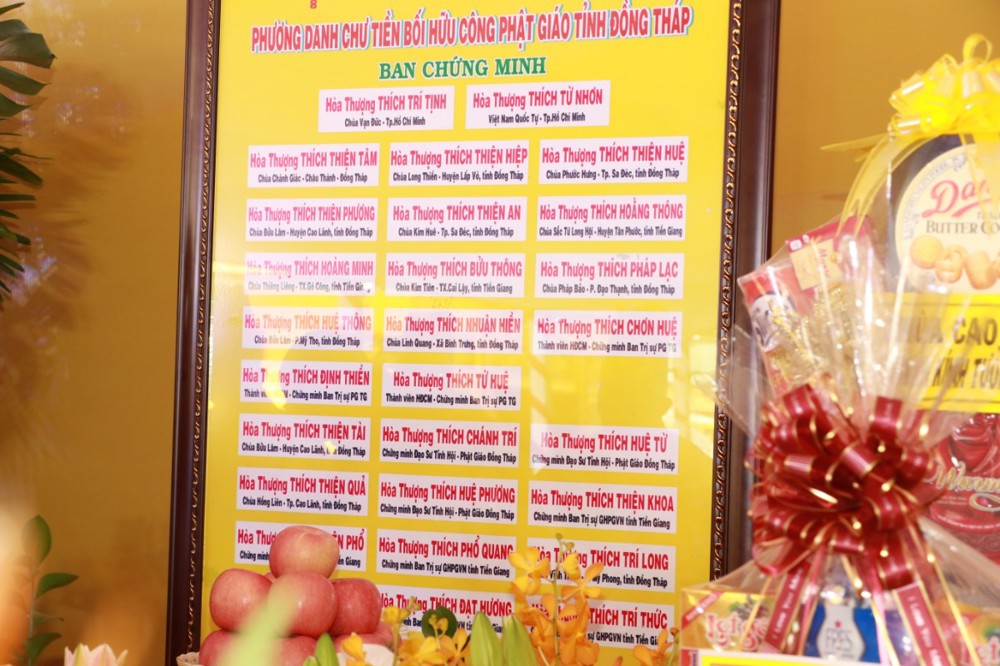 PHƯƠNG DANH CHƯ TIỀN BỐI HỮU CÔNG PHẬT GIÁO TỈNH ĐỒNG THÁP
BAN CHỨNG MINH
Hòa Thượng THÍCH TRÍ TỊNH
Chùa Vạn Đức - Tp.Hồ Chí Minh
Hòa Thượng THÍCH TỪ NHƠN
Việt Nam Quốc Tự - Tp.Hồ Chí Minh
Hòa Thượng THÍCH THIỆN TÂM
Chùa Chánh Giác - Châu Thành - Đồng Tháp
Hòa Thượng THÍCH THIỆN HIỆP
Chùa Long Thiền - Huyện Lấp Vò, tỉnh Đồng Tháp
Hòa Thượng THÍCH THIỆN HUỆ
Chùa Phước Hưng - Tp. Sa Đéc, tỉnh Đồng Tháp
Hòa Thượng THÍCH THIỆN PHƯỚNG
Chùa Bửu Lâm - Huyện Cao Lãnh, tỉnh Đồng Tháp
Hòa Thượng THÍCH THIỆN AN
Chùa Kim Huê - Tp. Sa Đéc, tỉnh Đồng Tháp
Hòa Thượng THÍCH HOẰNG THÔNG
Chùa Sắc Tứ Long Hội - Huyện Tân Phước, tỉnh Tiền Giang
Hòa Thượng THÍCH HOẰNG MINH
Chùa Thiêng Liêng - TX.Gò Công, tỉnh Tiền Giang
Hòa Thượng THÍCH BỬU THÔNG
Chùa Kim Tiên - TX.Cai Lậy, tỉnh Tiền Giang
Hòa Thượng THÍCH PHÁP LẠC
Chùa Pháp Bảo - P. Đạo Thạnh, tỉnh Đồng Tháp
Hòa Thượng THÍCH HUỆ THÔNG
Chùa Bửu Lâm - P.Mỹ Tho, tỉnh Đồng Tháp
Hòa Thượng THÍCH NHUẬN HIỀN
Chùa Linh Quang - Xã Bình Trưng, tỉnh Đồng Tháp
Hòa Thượng THÍCH CHƠN HUỆ
Thành viên HĐCM - Chứng minh Ban Trị sự PG TG
Hòa Thượng THÍCH ĐỊNH THIỀN
Thành viên HĐCM - Chứng minh Ban Trị sự PG TG
Hòa Thượng THÍCH TỪ HUỆ
Thành viên HĐCM - Chứng minh Ban Trị sự PG TG
Hòa Thượng THÍCH THIỆN TÀI
Chùa Bửu Lâm - Huyện Cao Lãnh, tỉnh Đồng Tháp
Hòa Thượng THÍCH CHÁNH TRÍ
Chứng minh Đạo Sư Tỉnh Hội - Phật Giáo Đồng Tháp
Hòa Thượng THÍCH HUỆ TỪ
Chứng minh Đạo Sư Tỉnh Hội - Phật Giáo Đồng Tháp
Hòa Thượng THÍCH THIỆN QUẢ
Chùa Hồng Liên - Tp. Cao Lãnh, tỉnh Đồng Tháp
Hòa Thượng THÍCH HUỆ PHƯƠNG
Chứng minh Đạo Sư Tỉnh Hội - Phật Giáo Đồng Tháp
Hòa Thượng THÍCH THIỆN KHOA
Chứng minh Ban Trị sự GHPGVN tỉnh Tiền Giang
Hòa Thượng PHỔ
Chứng minh Tiền Giang
Hòa Thượng THÍCH PHỔ QUANG
Chứng minh Ban Trị sự GHPGVN tỉnh Tiền Giang
Hòa Thượng THÍCH TRÍ LONG
Phong, tỉnh Đồng Tháp
Hòa Thượng THÍCH ĐẠT HƯƠNG
THÍCH TRÍ THỨC
GHPGVN tỉnh Tiền Giang
BUTTER
CAO
KÍNH